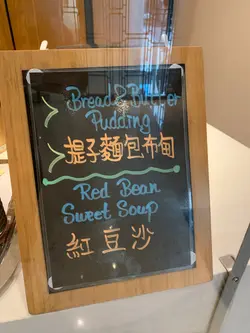 Bread & Butter
Pudding
提子麵包布甸
Red Bean
Sweet Soup
紅豆沙